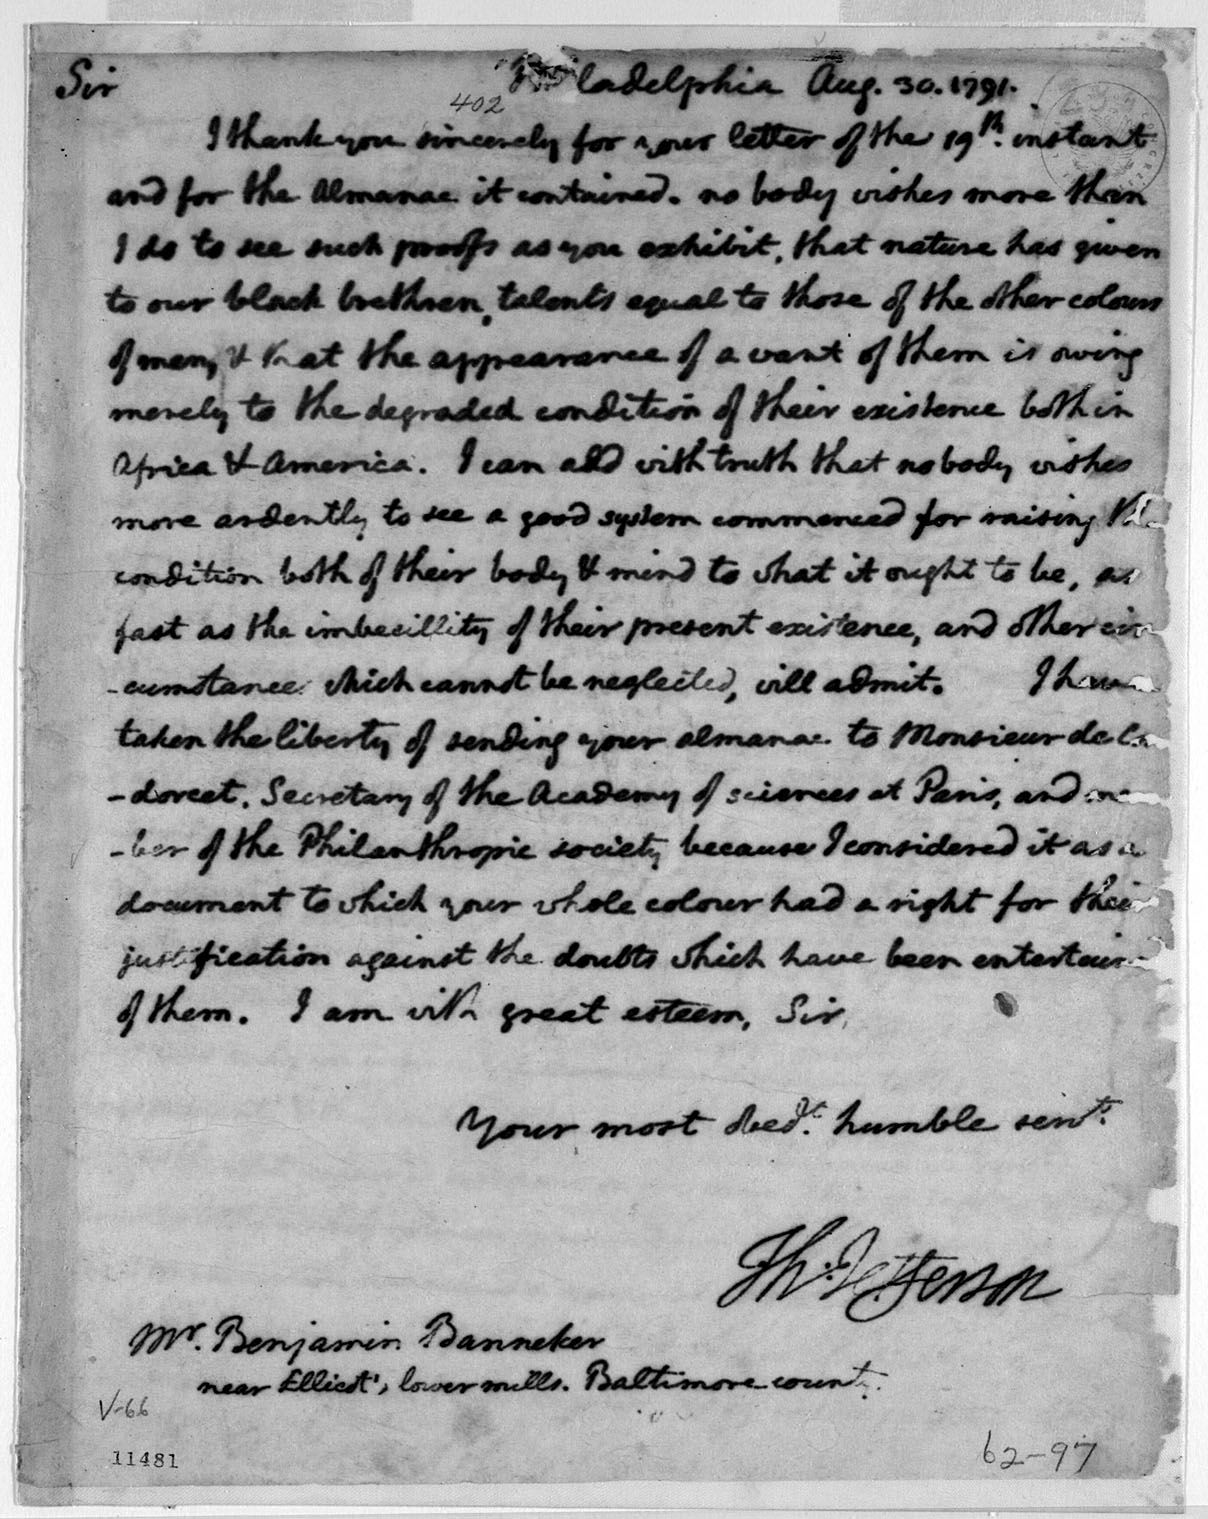 Sir Philadelphia Aug. 30. 1791.
402
I thank you sincerely for your letter of the 19th. instant
and for the Almanac it contained. no body wishes more than
I do to see such proofs as you exhibit, that nature has given
to our black brethren, talents equal to those of the other colours
of men, & that the appearance of a want of them is owing
merely to the degraded condition of their existence both in
Africa & America. I can add with truth that no body wishes
more ardently to see a good system commenced for raising the
condition both of their body & mind to what it ought to be, as
fast as the imbecillity of their present existence, and other cir
-cumstance which cannot be neglected, will admit. I have
taken the liberty of sending your almanac to Monsieur de
-dorcet, Secretary of the Academy of sciences at Paris, and mem
-ber of the Philanthropic society because I considered it as a
document to which your whole colour had a right for their
justification against the doubts which have been entertain
of them. I am with great esteem, Sir,
Your most obedt. humble servt.
Th: Jefferson
Mr. Benjamin Banneker
near Ellicot's, lower mills. Baltimore county.
V-66
11481
62-97